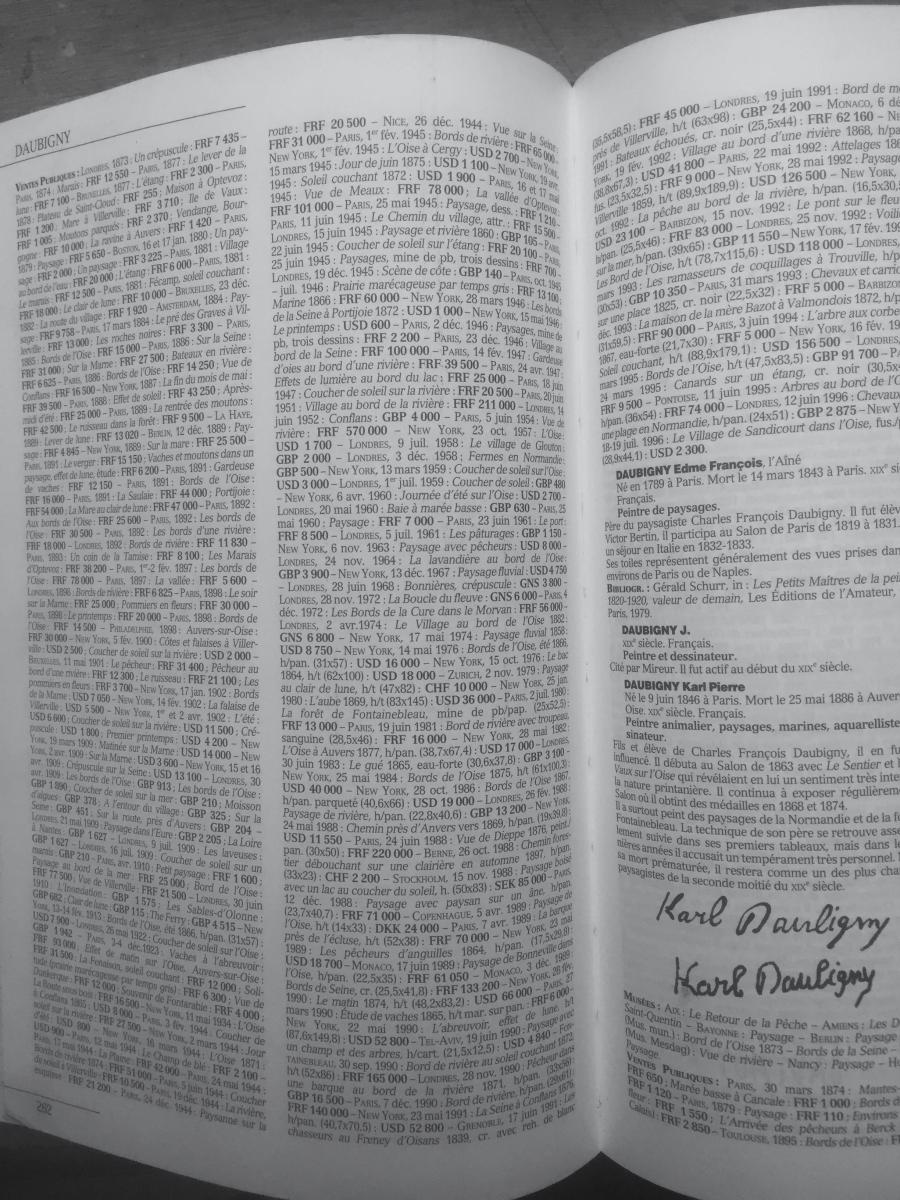 DAUBIGNY
VENTES PUBLIQUES : LONDRES, 1873 : Un crépuscule : FRF 7 435 –
PARIS, 1874 : Marais : FRF 12 550 – PARIS, 1877 : Le lever de la
lune : FRF 7 100 – BRUXELLES, 1877 : L'étang : FRF 2 300 – PARIS,
1878 : Plateau de Saint-Cloud : FRF 255 ; Maison à Optevoz :
FRF 1 200 ; Mare à Villerville : FRF 3 710 ; Ile de Vaux :
FRF 1 005 ; Moutons parqués : FRF 2 370 ; Vendange, Bour-
gogne : FRF 10 000 ; La ravine à Auvers : FRF 1 420 – PARIS,
1879 : Paysage : FRF 5 650 – BOSTON, 16 et 17 jan. 1880 : Un pay-
sage : FRF 2 000 ; Un paysage : FRF 3 225 – PARIS, 1881 : Village
au bord de l'eau : FRF 20 000 ; L'étang : FRF 6 000 – PARIS, 1881 :
Le marais : FRF 12 500 – PARIS, 1881 : Fécamp, soleil couchant :
FRF 18 000 ; Le clair de lune : FRF 10 000 – BRUXELLES, 23 déc.
1882 : La route du village : FRF 1 920 – AMSTERDAM, 1884 : Pay-
sage : FRF 9 758 – PARIS, 17 mars 1884 : Le pré des Graves à Vil-
lerville : FRF 13 000 ; Les roches noires : FRF 3 300 – PARIS,
1885 : Bords de l'Oise : FRF 15 000 – PARIS, 1886 : Sur la Seine :
FRF 31 000 ; Sur la Marne : FRF 27 500 ; Bateaux en rivière :
FRF 6 625 – PARIS, 1886 : Bords de l'Oise : FRF 14 250 ; Vue de
Conflans : FRF 16 500 – NEW YORK, 1887 : La fin du mois de mai :
FRF 39 500 – PARIS, 1888 : Effet de soleil : FRF 43 250 ; Après-
midi d'été : FRF 25 000 – PARIS, 1889 : La rentrée des moutons :
FRF 42 500 ; Le ruisseau dans la forêt : FRF 9 500 – LA HAYE,
1889 : Lever de lune : FRF 13 020 – BERLIN, 12 déc. 1889 : Pay-
sage : FRF 4 845 – NEW YORK, 1889 : Sur la mare : FRF 25 500 –
PARIS, 1891 : Le verger : FRF 15 150 ; Vaches et moutons dans un
paysage, effet de lune, étude : FRF 6 200 – PARIS, 1891 : Gardeuse
de vaches : FRF 12 150 – PARIS, 1891 : Bords de l'Oise :
FRF 16 000 – PARIS, 1891 : La Saulaie : FRF 44 000 ; Portijoie :
FRF 54 000 ; La Mare au clair de lune : FRF 47 000 – PARIS, 1892 :
Aux bords de l'Oise : FRF 25 600 – PARIS, 1892 : Les bords de
l'Oise : FRF 30 500 – PARIS, 1892 : Les bords d'une rivière :
FRF 18 000 – LONDRES, 1892 : Bords de rivière : FRF 11 830 –
PARIS, 1893 : Un coin de la Tamise : FRF 8 100 ; Les Marais
d'Optevoz : FRF 38 200 – PARIS, 1er-2 fév. 1897 : Les bords de
l'Oise : FRF 78 000 – PARIS, 1897 : La vallée : FRF 5 600 –
LONDRES, 1898 : Bords de rivière : FRF 6 825 – PARIS, 1898 : Le soir
sur la Marne : FRF 25 000 ; Pommiers en fleurs : FRF 30 000 –
PARIS, 1898 : Le printemps : FRF 20 000 – PARIS, 1898 : Bords de
l'Oise : FRF 14 500 – PHILADELPHIE, 1898 : Auvers-sur-Oise :
FRF 30 000 – NEW YORK, 5 fév. 1900 : Côtes et falaises à Viller-
ville : USD 2 500 ; Coucher de soleil sur la rivière : USD 2 000 –
BRUXELLES, 11 mai 1901 : Le pêcheur : FRF 31 400 ; Pêcheur au
bord d'une rivière : FRF 12 300 ; Le ruisseau : FRF 21 100 ; Les
pommiers en fleurs : FRF 3 700 – NEW YORK, 17 jan. 1902 : Bords
de la Marne : USD 7 050 – NEW YORK, 14 fév. 1902 : La falaise de
Villerville : USD 5 500 – NEW YORK, 1er et 2 avr. 1902 : L'été :
USD 6 600 ; Coucher de soleil sur la rivière : USD 11 500 ; Cré-
puscule : USD 1 800 ; Premier printemps : USD 4 200 – NEW
YORK, 19 mars 1909 : Matinée sur la Marne : USD 14 000 – NEW
YORK, 2 avr. 1909 : Sur la Marne : USD 3 600 – NEW YORK, 15 et 16
avr. 1909 : Crépuscule sur la Seine : USD 13 100 – LONDRES, 30
avr. 1909 : Les bords de l'Oise : GBP 913 ; Les bords de l'Oise :
GBP 1 890 ; Coucher de soleil sur la mer : GBP 210 ; Moisson
d'aigues : GBP 378 ; A l'entour du village : GBP 325 ; Sur la
Seine : GBP 451 ; Sur la route, près d'Auvers : GBP 204 –
LONDRES, 21 mai 1909 : Paysage dans l'Eure : GBP 2 205 ; La Loire
à Nantes : GBP 1 627 – LONDRES, 9 juil. 1909 : Les laveuses :
GBP 1 627 – LONDRES, 16 juil. 1909 : Coucher de soleil sur un
marais : GBP 210 – PARIS, avr. 1910 : Petit paysage : FRF 1 600 ;
Paysage au bord de la mer : FRF 25 000 ; Bord de l'Oise :
FRF 77 500 ; Vue de Villerville : FRF 21 500 – LONDRES, 30 juin
1910 : L'Inondation : GBP 1 575 ; Les Sables-d'Olonne :
GBP 682 ; Clair de lune : GBP 115 ; The Ferry : GBP 4 515 – NEW
YORK, 13-14 fév. 1913 : Bords de l'Oise, été 1866, h/pan. (31x57) :
USD 7 900 – LONDRES, 26 mai 1922 : Coucher de soleil sur l'Oise :
GBP 1 942 – PARIS, 3-4 déc.1923 : Vaches à l'abreuvoir :
FRF 93 000 ; Effet de matin sur l'Oise, Auvers-sur-Oise :
FRF 31 500 ; La Fenaison, soleil couchant : FRF 12 000 ; Soli-
tude (prairie marécageuse par temps gris) : FRF 6 300 ; Vue de
Dunkerque : FRF 12 000 ; Souvenir de Fontarabie : FRF 4 000 ;
La Route sous bois : FRF 16 500 – NEW YORK, 11 mai 1934 : L'Oise
à Conflans 1865 : USD 8 000 – PARIS, 3 fév. 1944 : Coucher de
soleil sur la rivière : FRF 27 500 – NEW YORK, 2 mars 1944 : Jour
d'été : USD 800 – NEW YORK, 16 mars 1944 : L'Oise :
USD 900 – PARIS, 12 mai 1944 : Le Champ de blé : FRF 2 100 –
PARIS, 17 mai 1944 : La Plaine : FRF 42 000 – PARIS, 24 mai 1944 :
Bords de rivière 1874 : FRF 51 000 – PARIS, 5 juin 1944 : Coucher
de soleil à Villerville : FRF 10 500 – PARIS, 19 déc. 1944 : La rivière,
esquisse : FRF 21 200 – PARIS, 24 déc. 1944 : Paysanne sur la
282
route : FRF 20 500 – NICE, 26 déc. 1944 : Vue sur la Seine :
FRF 31 000 – PARIS, 1er fév. 1945 : Bords de rivière : FRF 65 000 –
NEW YORK, 1er fév. 1945 : L'Oise à Cergy : USD 2 700 – NEW YORK,
15 mars 1945 : Jour de juin 1875 : USD 1 100 – NEW YORK, 19 avr.
1945 : Soleil couchant 1872 : USD 1 900 – PARIS, 16 et 17 mai
1945 : Vue de Meaux : FRF 78 000 ; La vallée d'Optevoz :
FRF 101 000 – PARIS, 25 mai 1945 : Paysage, dess. : FRF 1 210 –
PARIS, 11 juin 1945 : Le Chemin du village, attr. : FRF 15 500 –
LONDRES, 15 juin 1945 : Paysage et rivière 1860 : GBP 105 – PARIS,
22 juin 1945 : Coucher de soleil sur l'étang : FRF 20 100 – PARIS,
25 juin 1945 : Paysages, mine de pb, trois dessins : FRF 700 –
LONDRES, 19 déc. 1945 : Scène de côte : GBP 140 – PARIS, oct. 1945
– juil. 1946 : Prairie marécageuse par temps gris : FRF 13 100 ;
Marine 1866 : FRF 60 000 – NEW YORK, 28 mars 1946 : Les bords
de la Seine à Portijoie 1872 : USD 1 000 – NEW YORK, 15 mai 1946 :
Le printemps : USD 600 – PARIS, 2 déc. 1946 : Paysages, mine de
pb, trois dessins : FRF 2 200 – PARIS, 23 déc. 1946 : Village au
bord de la Seine : FRF 100 000 – PARIS, 14 fév. 1947 : Gardeuse
d'oies au bord d'une rivière : FRF 39 500 – PARIS, 24 avr. 1947 :
Effets de lumière au bord du lac : FRF 25 000 – PARIS, 18 juin
1947 : Coucher de soleil sur la rivière : FRF 20 500 – PARIS, 20 juin
1951 : Village au bord de la rivière : FRF 211 000 – LONDRES, 14
juin 1952 : Conflans : GBP 4 000 – PARIS, 5 juin 1954 : Vue de
rivière : FRF 570 000 – NEW YORK, 23 oct. 1957 : L'Oise :
USD 1 700 – LONDRES, 9 juil. 1958 : Le village de Glouton :
GBP 2 000 – LONDRES, 3 déc. 1958 : Fermes en Normandie :
GBP 500 – NEW YORK, 13 mars 1959 : Coucher de soleil sur l'Oise :
USD 3 000 – LONDRES, 1er juil. 1959 : Coucher de soleil : GBP 480
– NEW YORK, 6 avr. 1960 : Journée d'été sur l'Oise : USD 2 700 –
LONDRES, 20 mai 1960 : Baie à marée basse : GBP 630 – PARIS, 25
mai 1960 : Paysage : FRF 7 000 – PARIS, 23 juin 1961 : Le port :
FRF 8 500 – LONDRES, 5 juil. 1961 : Les pâturages : GBP 1 150 –
NEW YORK, 6 nov. 1963 : Paysage avec pêcheurs : USD 8 000 –
LONDRES, 24 nov. 1964 : La lavandière au bord de l'Oise :
GBP 3 900 – NEW YORK, 13 déc. 1967 : Paysage fluvial : USD 4 750
– LONDRES, 28 juin 1968 : Bonnières, crépuscule : GNS 3 800 –
LONDRES, 28 nov. 1972 : La Boucle du fleuve : GNS 6 000 – PARIS, 4
déc. 1972 : Les Bords de la Cure dans le Morvan : FRF 56 000 –
LONDRES, 2 avr.1974 : Le Village au bord de l'Oise 1882 :
GNS 6 800 – NEW YORK, 17 mai 1974 : Paysage fluvial 1858 :
USD 8 750 – NEW YORK, 14 mai 1976 : Bords de l'Oise, été 1866,
h/pan. (31x57) : USD 16 000 – NEW YORK, 15 oct. 1976 : Le bac
1864, h/t (62x100) : USD 18 000 – ZURICH, 2 nov. 1979 : Paysage
au clair de lune, h/t (47x82) : CHF 10 000 – NEW YORK, 25 jan.
1980 : L'aube 1869, h/t (83x145) : USD 36 000 – PARIS, 2 juil. 1980 :
La forêt de Fontainebleau, mine de pb/pap. (25x52,5) :
FRF 13 000 – PARIS, 19 juin 1981 : Bord de rivière avec troupeau,
sanguine (28,5x46) : FRF 16 000 – NEW YORK, 28 mai 1982 :
L'Oise à Auvers 1877, h/pan. (38,7x67,4) : USD 17 000 – LONDRES,
30 juin 1983 : Le gué 1865, eau-forte (30,6x37,8) : GBP 3 100 –
NEW YORK, 25 mai 1984 : Bords de l'Oise 1875, h/t (61x100,3) :
USD 40 000 – NEW YORK, 28 oct. 1986 : Bords de l'Oise 1867,
h/pan. parqueté (40,6x66) : USD 19 000 – LONDRES, 26 fév. 1988 :
Paysage de rivière, h/pan. (22,8x40,6) : GBP 13 200 – NEW YORK,
24 mai 1988 : Chemin près d'Anvers vers 1869, h/pan. (19x39,8) :
USD 11 550 – PARIS, 24 juin 1988 : Vue de Dieppe 1876, peint./
pan. (30x50) : FRF 220 000 – BERNE, 26 oct. 1988 : Chemin fores-
tier débouchant sur une clairière en automne 1897, h/pan.
(33x23) : CHF 2 200 – STOCKHOLM, 15 nov. 1988 : Paysage boisé
avec un lac au coucher du soleil, h. (50x83) : SEK 85 000 – PARIS,
12 déc. 1988 : Paysage avec paysan sur un âne, h/pan.
(23,7x40,7) : FRF 71 000 – COPENHAGUE, 5 avr. 1989 : Paysage de
l'Oise, h/t (14x33) : DKK 24 000 – PARIS, 7 avr. 1989 : La barque
près de l'écluse, h/t (52x38) : FRF 70 000 – NEW YORK, 23 mai
1989 : Les pêcheurs d'anguilles 1864, h/pan. (17,5x29,8) :
USD 18 700 – MONACO, 17 juin 1989 : Paysage de Bonneville dans
l'Oise, h/pan. (22,5x35) : FRF 61 050 – MONACO, 3 déc. 1989 :
Bords de Seine, cr. (25,5x41,8) : FRF 133 200 – NEW YORK, 28 fév.
1990 : Le matin 1874, h/t (48,2x83,2) : USD 66 000 – PARIS, 37
mars 1990 : Étude de vaches 1865, h/t mar. sur pan. : FRF 6 000 –
NEW YORK, 22 mai 1990 : L'abreuvoir, effet de lune, h/t
(87,6x149,8) : USD 52 800 – TEL-AVIV, 19 juin 1990 : Paysage avec
un champ et des arbres, h/cart. (21,5x12,5) : USD 4 840 – FON-
TAINEBLEAU, 30 sep. 1990 : Bord de rivière au soleil couchant 1872,
h/t (86x86) : FRF 165 000 – LONDRES, 28 nov. 1990 : Pêcheur dans
une barque au bord de la rivière 1871, h/pan. (33x58) :
GBP 16 500 – PARIS, 7 déc. 1990 : Bord de rivière, h/pan. (29x61) :
FRF 140 000 – NEW YORK, 23 mai 1991 : La Seine à Conflans 1876,
h/pan. (40,7x70,5) : USD 52 800 – GRENOBLE, 17 juin 1991 : Les
chasseurs au Freney d'Oisans 1839, cr. avec reh. de blanc
(35,5x58,5) : FRF 45 000 – LONDRES, 19 juin 1991 : Bord de me
près de Villerville, h/t (63x98) : GBP 24 200 – MONACO, 6 dé
1991 : Bateaux échoués, cr. noir (25,5x44) : FRF 62 160 – NE
YORK, 19 fév. 1992 : Village au bord d'une rivière 1868, h/pan
(38,8x67,3) : USD 41 800 – PARIS, 22 mai 1992 : Attelages 186
fus. (23,5x32,5) : FRF 9 000 – NEW YORK, 28 mai 1992 : Paysage
Villerville 1859, h/t (89,9x189,9) : USD 126 500 – NEW YORK,
oct. 1992 : La pêche au bord de la rivière, h/pan. (16,5x30,5
USD 23 100 – BARBIZON, 15 nov. 1992 : Le pont sur le fleu
h/pan. (25,5x46) : FRF 83 000 – LONDRES, 25 nov. 1992 : Voilie
sur la mer, h/pan. (39x65) : GBP 11 550 – NEW YORK, 17 fév. 199
Les Bord de l'Oise, h/t (78,7x115,6) : USD 118 000 – LONDRES,
mars 1993 : Les ramasseurs de coquillages à Trouville, h/p
(30x53) : GBP 10 350 – PARIS, 31 mars 1993 : Chevaux et carrio
sur une place 1825, cr. noir (22,5x32) : FRF 5 000 – BARBIZON
déc. 1993 : La maison de la mère Bazot à Valmondois 1872, h/p
(31x59,5) : FRF 90 000 – PARIS, 3 juin 1994 : L'arbre aux corbe
1867, eau-forte (21,7x30) : FRF 5 000 – NEW YORK, 16 fév. 19
Soleil couchant, h/t (88,9x179,1) : USD 156 500 – LONDRES,
mars 1995 : Bords de l'Oise, h/t (47,5x83,5) : GBP 91 700 – PA
24 mars 1995 : Canards sur un étang, cr. noir (30,5x4
FRF 9 500 – PONTOISE, 11 juin 1995 : Arbres au bord de l'O
h/pan. (30x54) : FRF 74 000 – LONDRES, 12 juin 1996 : Chevaux
une plage en Normandie, h/pan. (24x51) : GBP 2 875 – NEW Y
18-19 juil. 1996 : Le Village de Sandicourt dans l'Oise, fus./p
(28,9x44,1) : USD 2 300.
DAUBIGNY Edme François, l'Aîné
Né en 1789 à Paris. Mort le 14 mars 1843 à Paris. XIXe si
Français.
Peintre de paysages.
Père du paysagiste Charles François Daubigny. Il fut élèv
Victor Bertin, il participa au Salon de Paris de 1819 à 1831.
un séjour en Italie en 1832-1833.
Ses toiles représentent généralement des vues prises dan
environs de Paris ou de Naples.
BIBLIOGR. : Gérald Schurr, in : Les Petits Maîtres de la pein
1820-1920, valeur de demain, Les Éditions de l'Amateur,
Paris, 1979.
DAUBIGNY J.
XIXe siècle. Français.
Peintre et dessinateur.
Cité par Mireur. Il fut actif au début du XIXe siècle.
DAUBIGNY Karl Pierre
Né le 9 juin 1846 à Paris. Mort le 25 mai 1886 à Auvers
Oise. XIXe siècle. Français.
Peintre animalier, paysages, marines, aquarelliste
sinateur.
Fils et élève de Charles François Daubigny, il en fu
influencé. Il débuta au Salon de 1863 avec Le Sentier et
Vaux sur l'Oise qui révélaient en lui un sentiment très inte
la nature printanière. Il continua à exposer régulièrem
Salon où il obtint des médailles en 1868 et 1874.
Il a surtout peint des paysages de la Normandie et de la fo
Fontainebleau. La technique de son père se retrouve asse
lement suivie dans ses premiers tableaux, mais dans le
nières années il accusait un tempérament très personnel.
sa mort prématurée, il restera comme un des plus char
paysagistes de la seconde moitié du XIXe siècle.
Karl Daubigny
Karl Daubigny
MUSÉES : AIX : Le Retour de la Pêche – AMIENS : Les D
Saint-Quentin – BAYONNE : Paysage – BERLIN : Paysage
(Mus. mun.) : Bord de l'Oise 1873 – Bords de la Seine –
(Mus. Mesdag) : Vue de rivière – Nancy : Paysage – H
Paysage.
VENTES PUBLIQUES : PARIS, 30 mars 1874 : Mantes-
FRF 650 ; Marée basse à Cancale : FRF 1 000 ; Bords d
FRF 1 120 – PARIS, 1879 : Paysage : FRF 110 ; Environs
fleur : FRF 1 550 ; L'Arrivée des pêcheurs à Berck
Calais) : FRF 2 850 – TOULOUSE, 1895 : Bords de l'Oise : FR